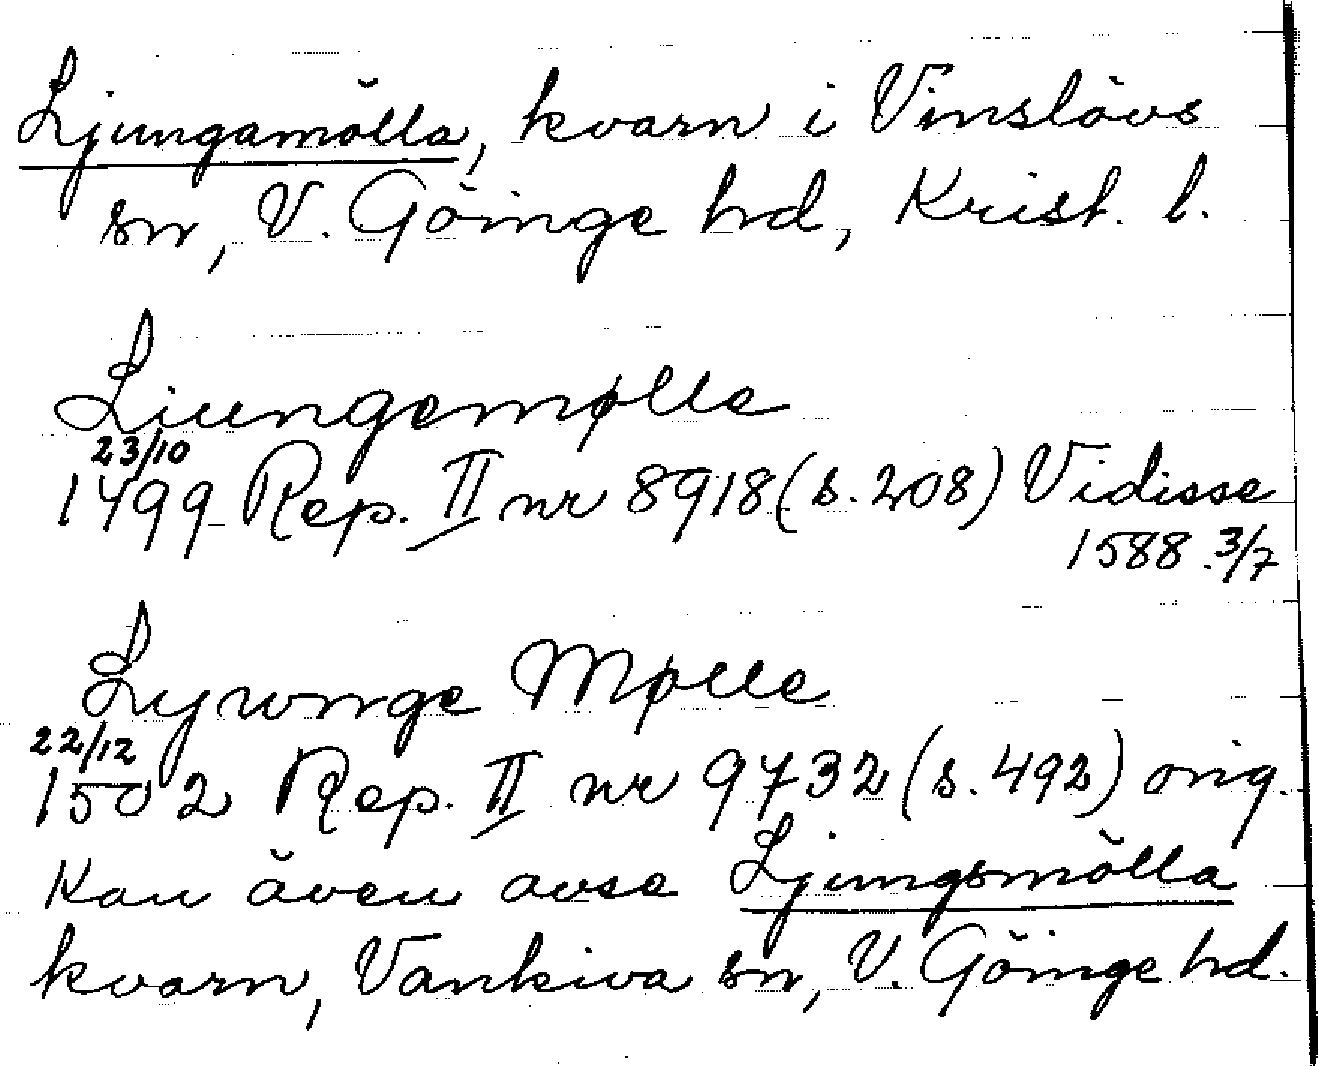 Ljungamölla, kvarn i Vinslövs
sn, V. Göinge hd, Krist. l.
Liungemølle
23/10
1499 Rep. II nr 8918 (s. 208) Vidisse
1588 3/7
Lywnge Mølle
22/12
1502 Rep. II nr 9732 (s. 492) orig.
Kan även avse Ljungsmölla
kvarn, Vankiva sn, V. Göinge hd.